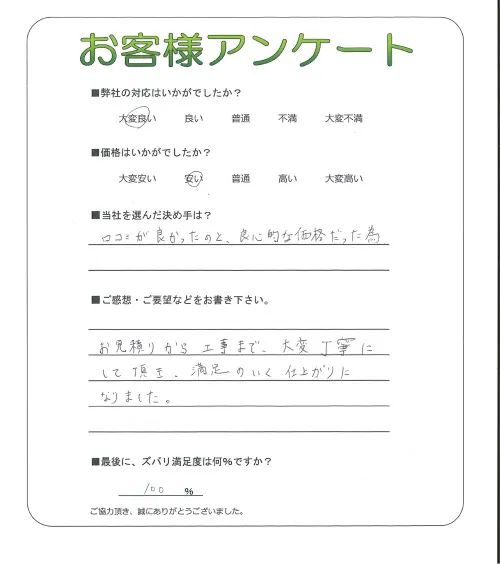 お客様アンケート
■弊社の対応はいかがでしたか？
大変良い 良い 普通 不満 大変不満
■価格はいかがでしたか？
大変安い 安い 普通 高い 大変高い
■当社を選んだ決め手は？
口コミが良かったのと、良心的な価格だった為
■ご感想・ご要望などをお書き下さい。
お見積りから工事まで、大変丁寧に
して頂き、満足のいく仕上がりに
なりました。
■最後に、ズバリ満足度は何％ですか？
100 %
ご協力頂き、誠にありがとうございました。